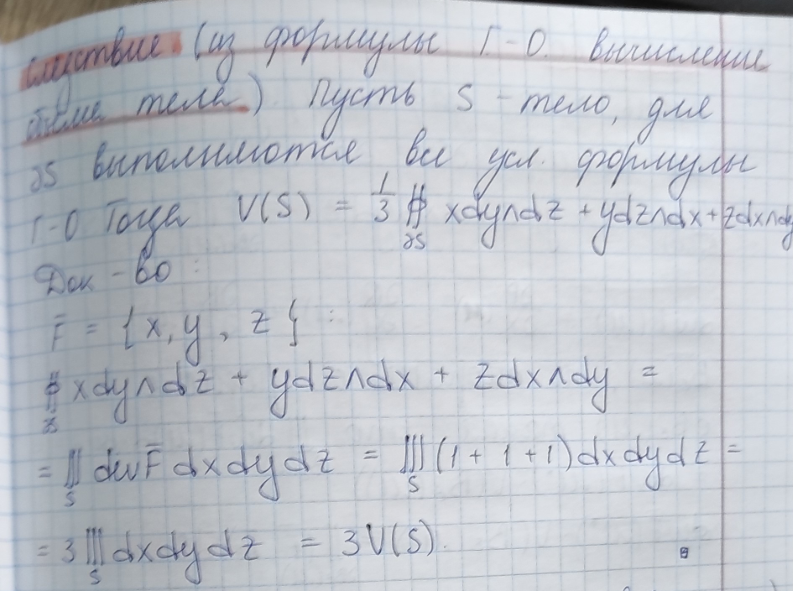 следствие (из формулы Г-О. вычисление
объёма тела) Пусть S - тело, для
∂S выполняются все усл. формулы
Г-О Тогда V(S) = 1/3 ∯_∂S xdy∧dz + ydz∧dx + zdx∧dy
Док-во:
F̄ = {x, y, z} :
∯_∂S xdy∧dz + ydz∧dx + zdx∧dy =
= ∭_S div F̄ dxdydz = ∭_S (1 + 1 + 1) dxdydz =
= 3 ∭_S dxdydz = 3V(S).